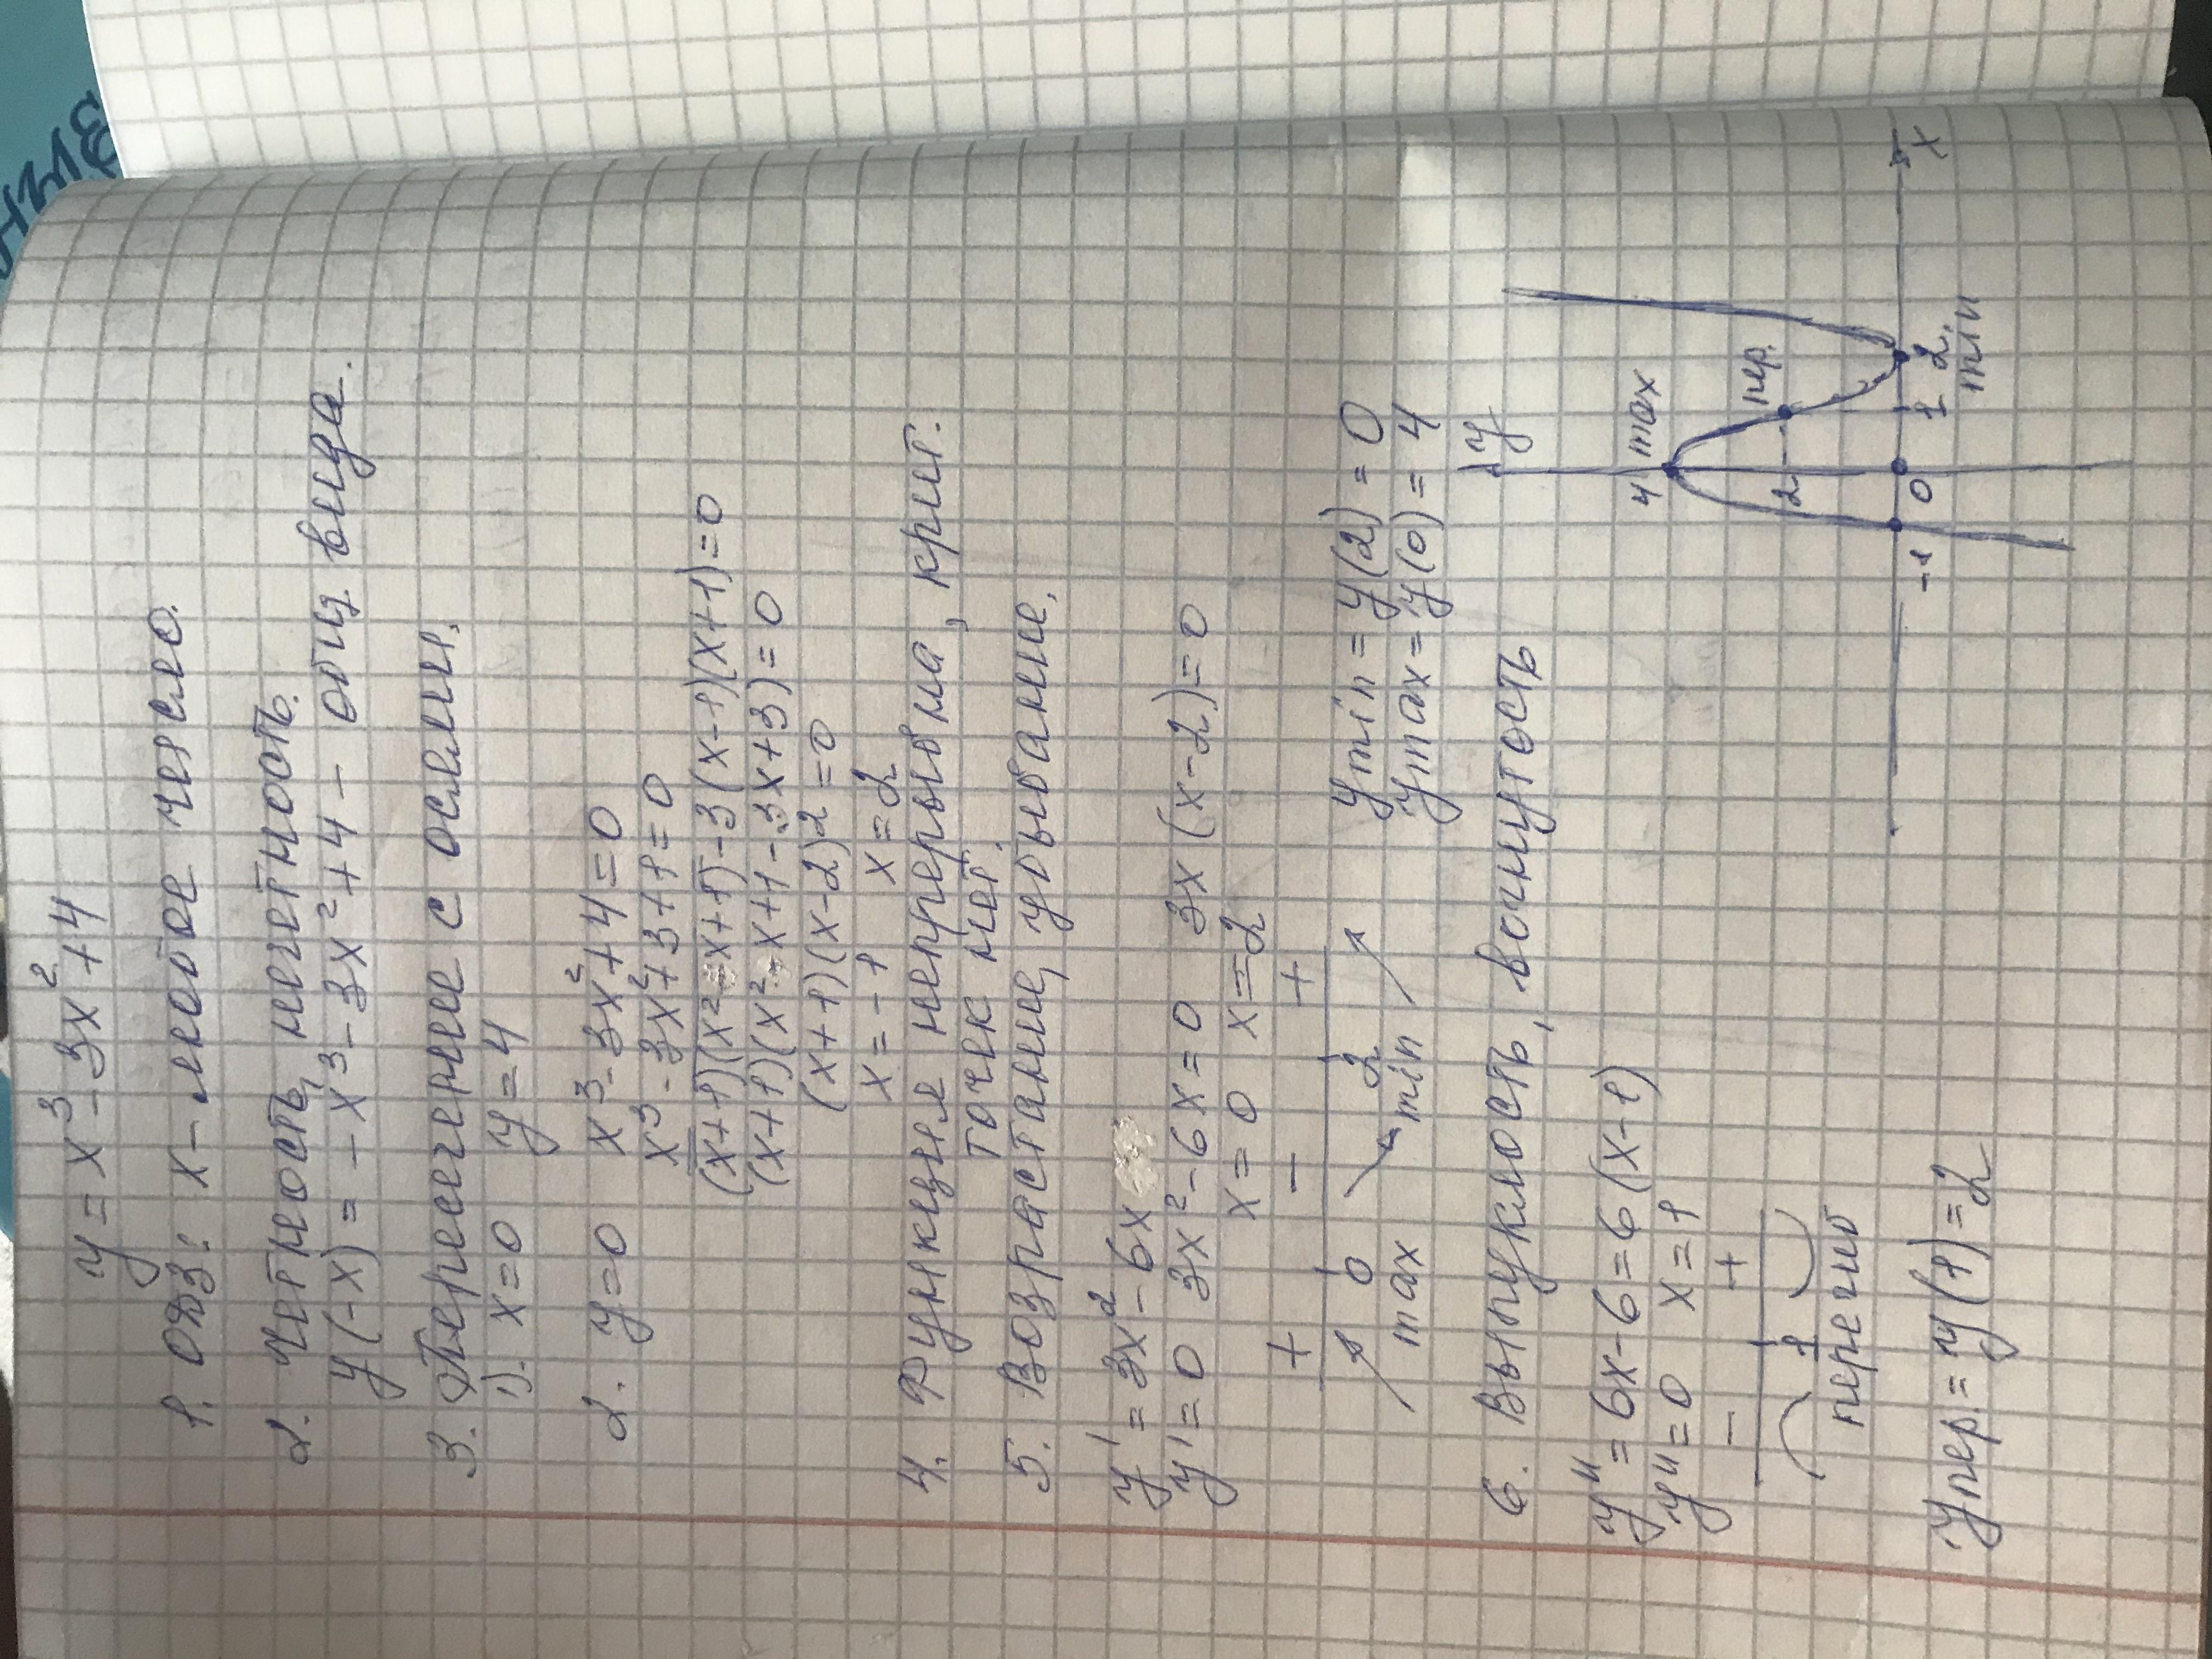 y = x³ - 3x² + 4
1. ОДЗ: x - любое число.
2. Четность, нечетность.
y(-x) = -x³ - 3x² + 4 - общ вида.
3. Пересечение с осями.
1). x = 0 y = 4
2. y = 0 x³ - 3x² + 4 = 0
x³ - 3x² + 3 + 1 = 0
(x+1)(x² - x + 1) - 3(x-1)(x+1) = 0
(x+1)(x² - x + 1 - 3x + 3) = 0
(x+1)(x-2)2 = 0
x = -1 x = 2
4. Функция непрерывна, крит.
точек нет.
5. Возрастание, убывание.
y' = 3x² - 6x
y' = 0 3x² - 6x = 0 3x(x-2) = 0
x = 0 x = 2
+ - +
0 2
max min
ymin = y(2) = 0
ymax = y(0) = 4
6. Выпуклость, вогнутость
y" = 6x - 6 = 6(x-1)
y" = 0 x = 1
- +
1
перегиб
yпер. = y(1) = 2
y
4 max
2 пер.
-1 0 1 2 x
min